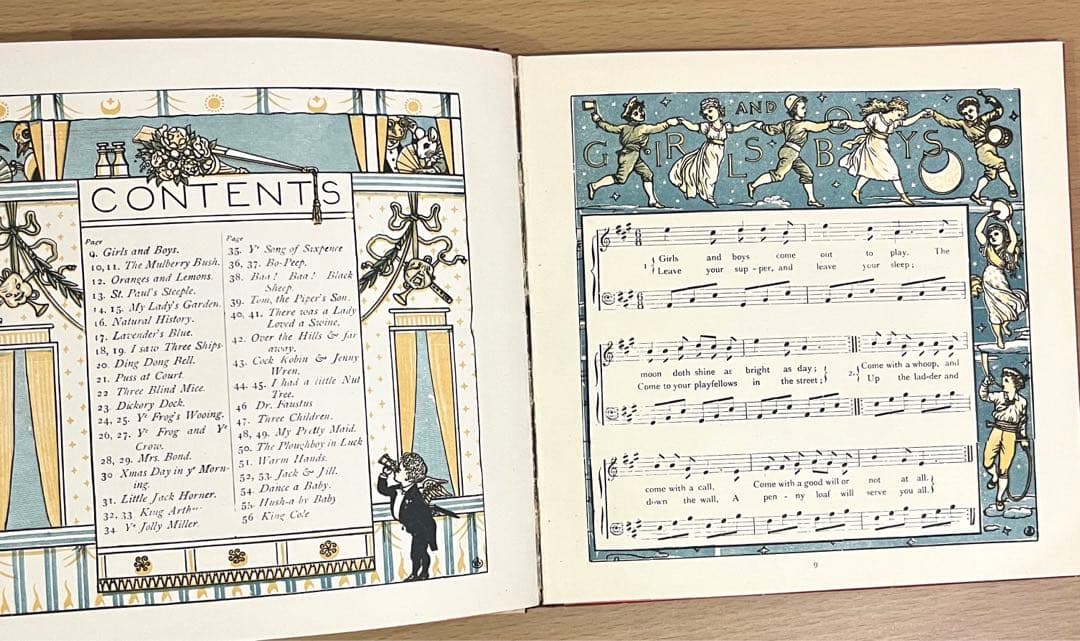 CONTENTS
Page
9. Girls and Boys.
10, 11. The Mulberry Bush.
12. Oranges and Lemons.
13. St. Paul's Steeple.
14. 15. My Lady's Garden.
16. Natural History.
17. Lavender's Blue.
18, 19. I saw Three Ships.
20. Ding Dong Bell.
21. Puss at Court.
22 Three Blind Mice.
23. Dickory Dock.
24, 25. Yᵉ Frog's Wooing.
26, 27. Yᵉ Frog and Yᵉ
Crow.
28, 29. Mrs. Bond.
30 Xmas Day in yᵉ Morn-
ing.
31. Little Jack Horner.
32, 33 King Arthur.
34 Yᵉ Jolly Miller.
Page
35. Yᵉ Song of Sixpence
36, 37. Bo-Peep.
38. Baa! Baa! Black
Sheep.
39. Tom, the Piper's Son.
40, 41. There was a Lady
Loved a Swine.
42. Over the Hills & far
away.
43. Cock Robin & Jenny
Wren.
44. 45. I had a little Nut
Tree.
46 Dr. Faustus
47. Three Children.
48, 49. My Pretty Maid.
50. The Ploughboy in Luck
51. Warm Hands.
52, 53. Jack & Jill.
54. Dance a Baby.
55. Hush-a by Baby
56 King Cole
GIRLS AND BOYS
1. Girls and boys come out to play, The
Leave your sup-per, and leave your sleep;
moon doth shine as bright as day; 2. Come with a whoop, and
Come to your playfellows in the street; Up the lad-der and
come with a call, Come with a good will or not at all.
down the wall, A pen-ny loaf will serve you all.
9